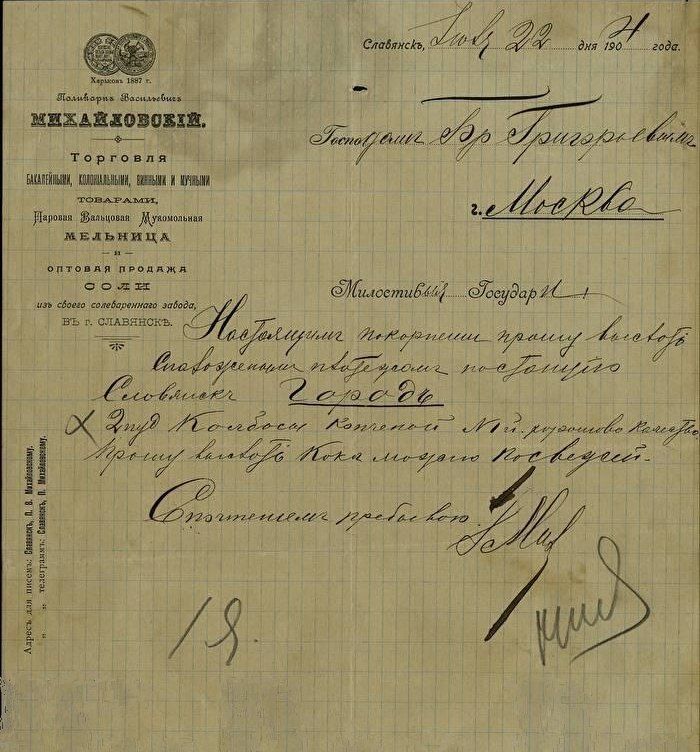 Харьковъ 1887 г.
Поликарпъ Васильевичъ
МИХАЙЛОВСКІЙ.
Торговля
БАКАЛЕЙНЫМИ, КОЛОНІАЛЬНЫМИ, ВИННЫМИ И МУЧНЫМИ
ТОВАРАМИ,
Паровая Вальцовая Мукомольная
МЕЛЬНИЦА
— и —
ОПТОВАЯ ПРОДАЖА
СОЛИ
изъ своего солевареннаго завода,
ВЪ г. СЛАВЯНСКѢ.
Адресъ для писемъ: Славянскъ, П. В. Михайловскому.
„ „ телеграммъ: Славянскъ, П. Михайловскому.
Славянскъ, 22 дня 1904 года.
Господамъ Бр Григорьевымъ
г. Москва
Милостивыя Государи
Настоящимъ покорнеши прошу выслать
снавоженымъ платежомъ постанцию
Словянскъ Городъ
2 пуд Колбасы копченой №й. хорошово качества
прошу выслать кока можно
Спочтенiемъ пребываю
К Мих
1 Я.